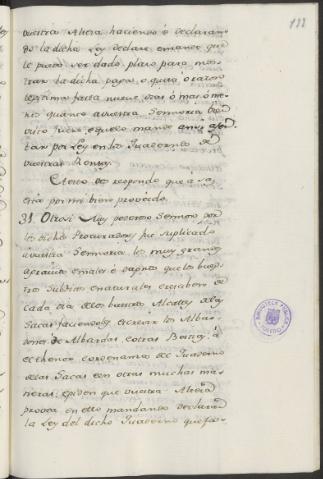 122
vuestra Alteza haciendo e declaran
do la dicha Ley declare e mande que
le pueda ser dado plazo para mos
trar la dicha paga, o quita o razon
legitima fasta nueve dias o mas o me
nos quanto a vuestra Señoria
visto fuere, e aquello mande
tar por Ley en los Quadernos de
vuestras Rentas.
A esto vos respondo que
esta por mi bien proveido.
31. Otrosi Muy poderoso Señor por
los dichos Procuradores fue suplicado
a vuestra Señoria los muy grandes
males e daños que los vues
tros subditos e naturales resciben de
cada dia de los vuestros Alcaldes de las
Sacas faciendoles escrevir los Albar
danes de Albardas, e otras Bestias, e
el thenor e ordenanza del Quaderno
de las Sacas e en otras muchas ma
neras: e piden que vuestra Alteza
provea en ello mandando declarar
la Ley del dicho Quaderno que fa-
BIBLIOTECA PUBLICA
TOLEDO